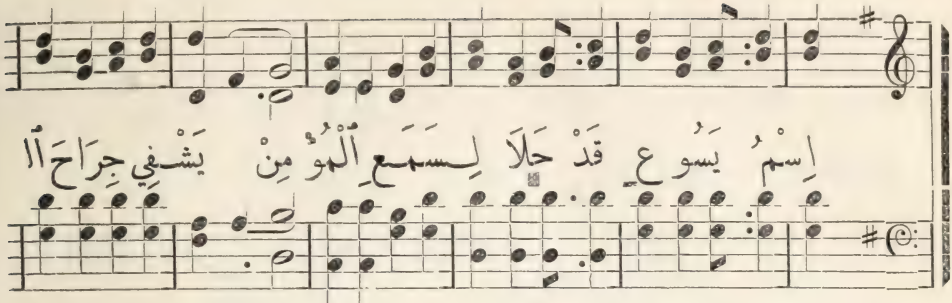 اِسْمُ يَسُوعَ قَدْ حَلَا لِسَمَعِ ٱلْمُؤْمِنْ يَشْفِي جِرَاحَ ٱلْ